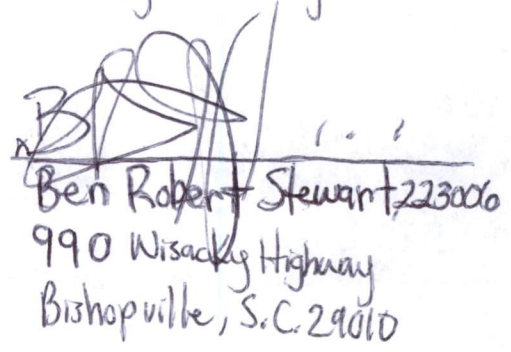 Ben Robert Stewart, 223006
990 Wisacky Highway
Bishopville, S.C. 29010